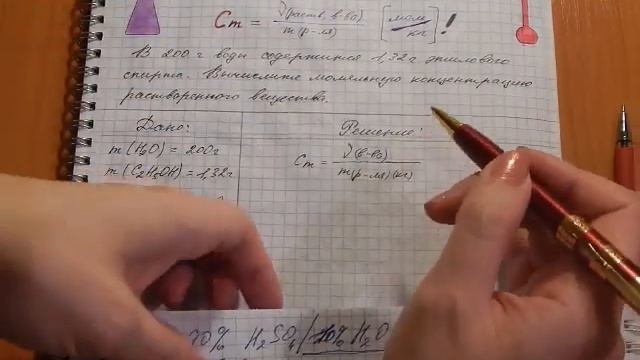 Cm = ν(раств. в-ва) / m(р-ля) [моль/кг]!
В 200 г воды содержится 1,32 г этилового
спирта. Вычислите моляльную концентрацию
растворенного вещества.
Дано:
m(H₂O) = 200г
m(C₂H₅OH) = 1,32г
Решение:
Cm = ν(в-ва) / m(р-ля)(кг)
H₂SO₄/ H₂O